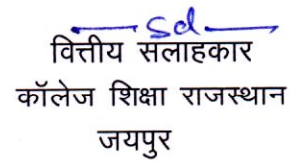 Sd
वित्तीय सलाहकार
कॉलेज शिक्षा राजस्थान
जयपुर